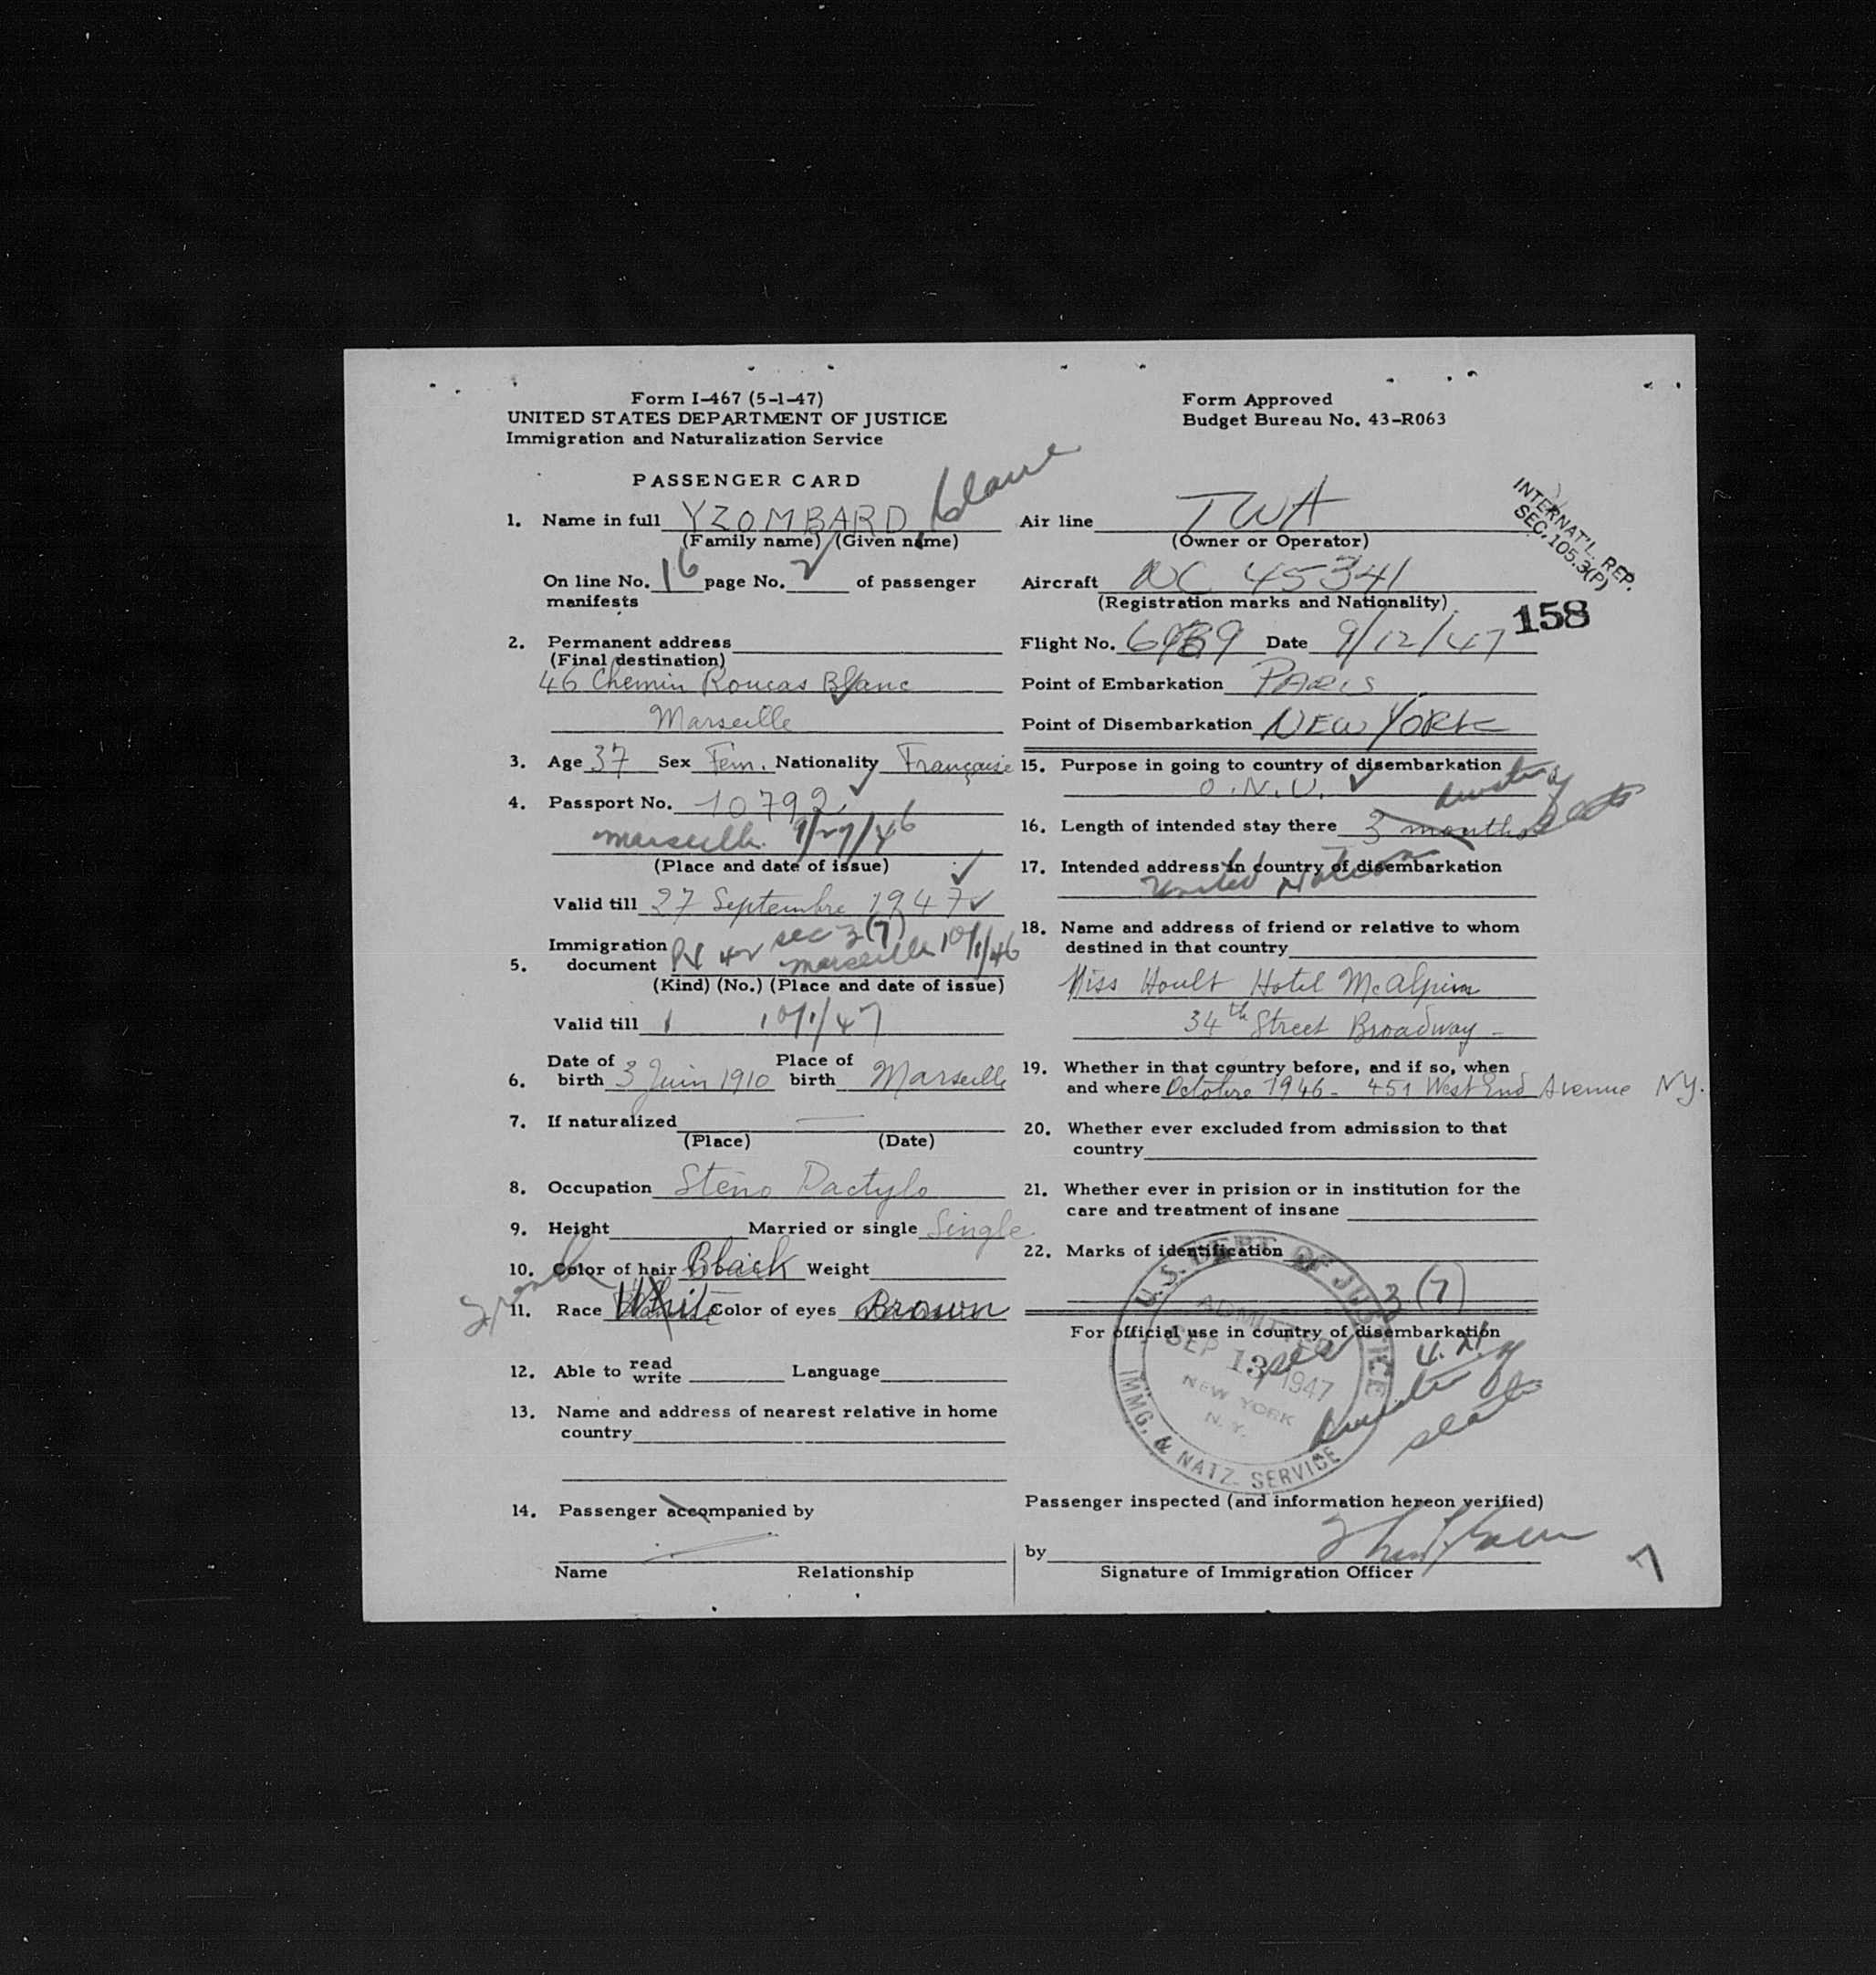 Form I-467 (5-1-47)
UNITED STATES DEPARTMENT OF JUSTICE
Immigration and Naturalization Service
Form Approved
Budget Bureau No. 43-R063
PASSENGER CARD
1. Name in full YZOMBARD
(Family name) (Given name)
On line No. 16 page No. 2 of passenger
manifests
2. Permanent address
(Final destination)
46 Chemin Roucas Blanc
Marseille
3. Age 37 Sex Fem. Nationality Française
4. Passport No. 10792
Marseille 9/27/46
(Place and date of issue)
Valid till 27 Septembre 1947
sec 3(7)
5. Immigration document 42 Marseille 10/1/46
(Kind) (No.) (Place and date of issue)
Valid till 10/1/47
6. Date of birth 3 Juin 1910 Place of birth Marseille
7. If naturalized —
(Place) (Date)
8. Occupation Sténo Dactylo
9. Height Married or single Single
10. Color of hair Black Weight
11. Race White Color of eyes Brown
12. Able to read write Language
13. Name and address of nearest relative in home
country
14. Passenger accompanied by
Name Relationship
Air line TWA
(Owner or Operator)
INTERNAT'L. REP.
SEC. 105.3(P)
Aircraft NC 45341
(Registration marks and Nationality)
158
Flight No. Date 9/12/47
Point of Embarkation PARIS
Point of Disembarkation NEW YORK
15. Purpose in going to country of disembarkation
O.N.U.
duration of
16. Length of intended stay there 3 months status
17. Intended address in country of disembarkation
United Nations
18. Name and address of friend or relative to whom
destined in that country
Miss Hoult Hotel McAlpin
34th Street Broadway -
19. Whether in that country before, and if so, when
and where Octobre 1946 - 451 West End Avenue NY.
20. Whether ever excluded from admission to that
country
21. Whether ever in prision or in institution for the
care and treatment of insane
22. Marks of identification
3(7)
For official use in country of disembarkation
U.S. DEPT OF JUSTICE
ADMITTED
SEP 13 1947
NEW YORK
N.Y.
IMMG. & NATZ. SERVICE
duration of
status
Passenger inspected (and information hereon verified)
by
Signature of Immigration Officer
7